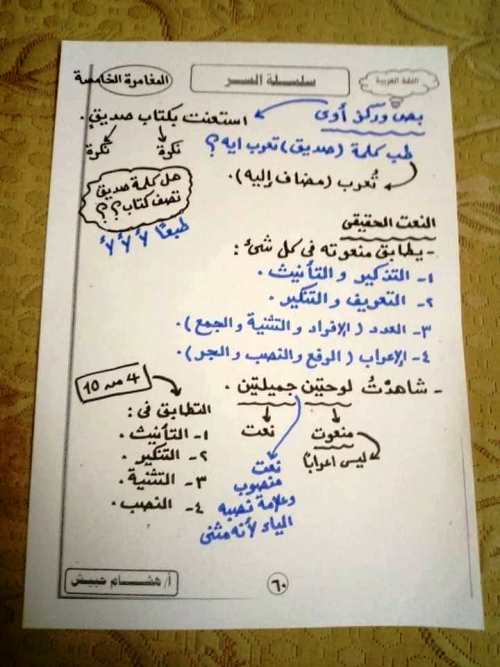 اللغة العربية
سلسلة السر
المغامرة الخامسة
بص وركز أوى
استعنت بكتاب صديقٍ.
نكرة
نكرة
طب كلمة (صديق) تعرب ايه ؟
تُعرب (مضاف إليه).
هل كلمة صديق
تصف كتاب؟؟
طبعًا لأ لأ لأ
النعت الحقيقى
- يطابق منعوته فى كل شئ :
١- التذكير والتأنيث .
٢- التعريف والتنكير .
٣- العدد (الإفراد والتثنية والجمع).
٤- الإعراب (الرفع والنصب والجر).
- شاهدْتُ لوحتين جميلتين .
منعوت
نعت
ليس اعرابًا
نعت
منصوب
وعلامة نصبه
الياء لأنه مثنى
4 من 10
التطابق فى :
١- التأنيث .
٢- التنكير .
٣- التثنية .
٤- النصب .
٦٠
أ/ هشام حبيش